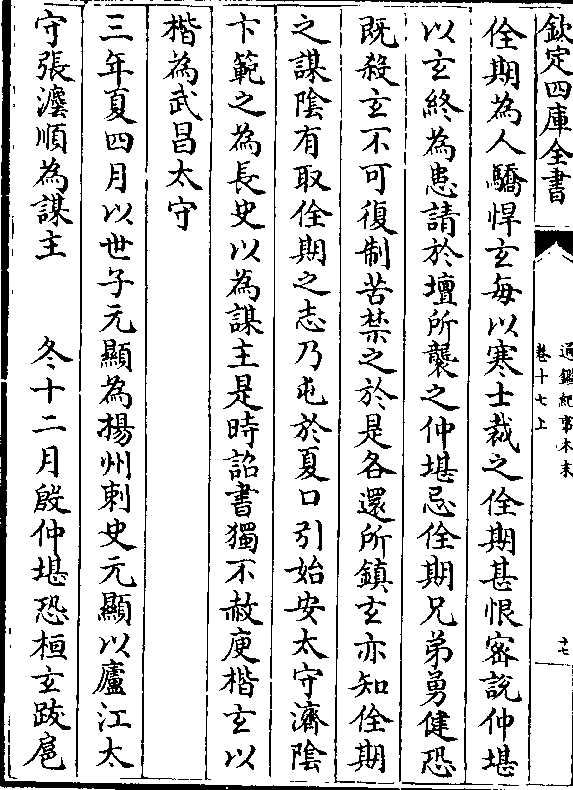 欽定四庫全書
通鑑紀事本末
卷十七上
十七
佺期為人驕悍玄每以寒士裁之佺期甚恨密說仲堪
以玄終為患請於壇所襲之仲堪忌佺期兄弟勇健恐
既殺玄不可復制苦禁之於是各還所鎮玄亦知佺期
之謀陰有取佺期之志乃屯於夏口引始安太守濟陰
卞範之為長史以為謀主是時詔書獨不赦庾楷玄以
楷為武昌太守
三年夏四月以世子元顯為揚州刺史元顯以廬江太
守張灋順為謀主　冬十二月殷仲堪恐桓玄跋扈